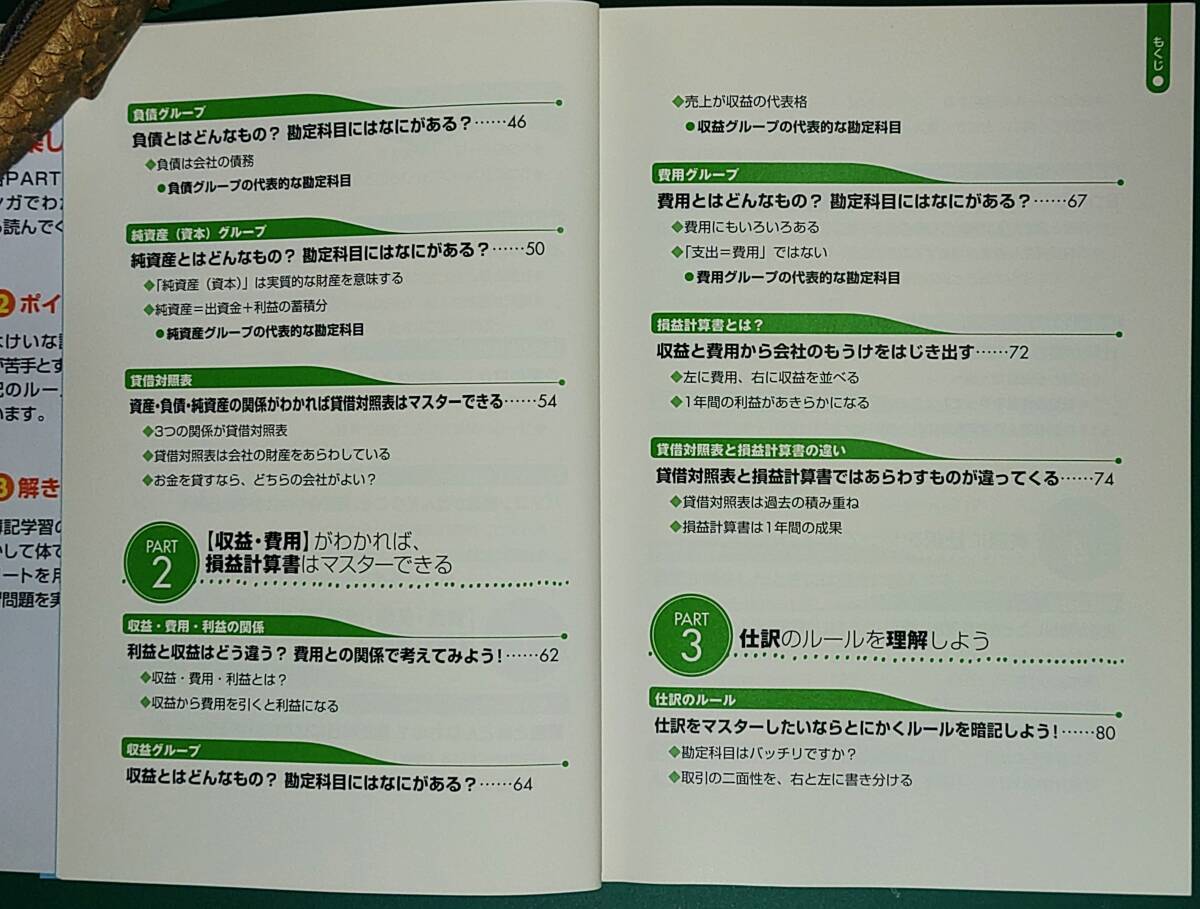 負債グループ
負債とはどんなもの? 勘定科目にはなにがある?……46
◆負債は会社の債務
●負債グループの代表的な勘定科目
純資産(資本)グループ
純資産とはどんなもの? 勘定科目にはなにがある?……50
◆「純資産(資本)」は実質的な財産を意味する
◆純資産=出資金+利益の蓄積分
●純資産グループの代表的な勘定科目
貸借対照表
資産・負債・純資産の関係がわかれば貸借対照表はマスターできる……54
◆3つの関係が貸借対照表
◆貸借対照表は会社の財産をあらわしている
◆お金を貸すなら、どちらの会社がよい?
PART
2
【収益・費用】がわかれば、
損益計算書はマスターできる
収益・費用・利益の関係
利益と収益はどう違う? 費用との関係で考えてみよう!……62
◆収益・費用・利益とは?
◆収益から費用を引くと利益になる
収益グループ
収益とはどんなもの? 勘定科目にはなにがある?……64
もくじ
◆売上が収益の代表格
●収益グループの代表的な勘定科目
費用グループ
費用とはどんなもの? 勘定科目にはなにがある?……67
◆費用にもいろいろある
◆「支出=費用」ではない
●費用グループの代表的な勘定科目
損益計算書とは?
収益と費用から会社のもうけをはじき出す……72
◆左に費用、右に収益を並べる
◆1年間の利益があきらかになる
貸借対照表と損益計算書の違い
貸借対照表と損益計算書ではあらわすものが違ってくる……74
◆貸借対照表は過去の積み重ね
◆損益計算書は1年間の成果
PART
3
仕訳のルールを理解しよう
仕訳のルール
仕訳をマスターしたいならとにかくルールを暗記しよう!……80
◆勘定科目はバッチリですか?
◆取引の二面性を、右と左に書き分ける
PART
ンガでわ
読んでく
2 ポイ
はけいな
が苦手とす
記のルー
います。
3 解き
簿記学習の
かして体で
ートを用
習問題を実